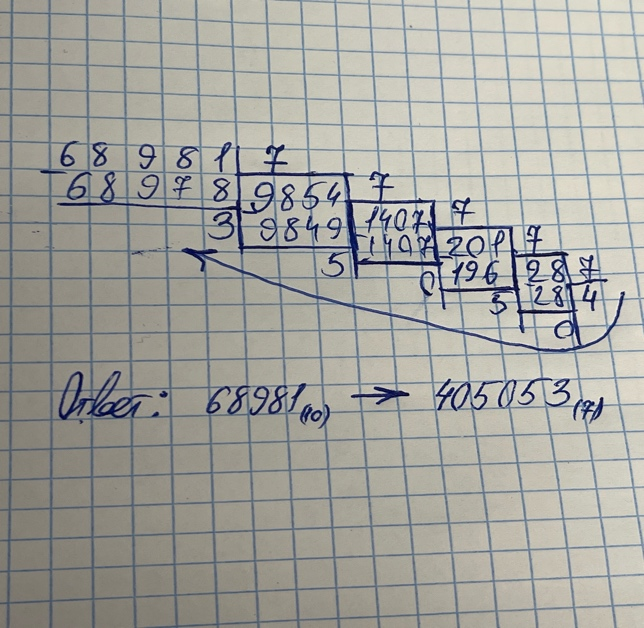 68981 7
68978 9854 7
3 9849 1407 7
5 1407 201 7
0 196 28 7
5 28 4
0
Ответ: 68981(10) → 405053(7)